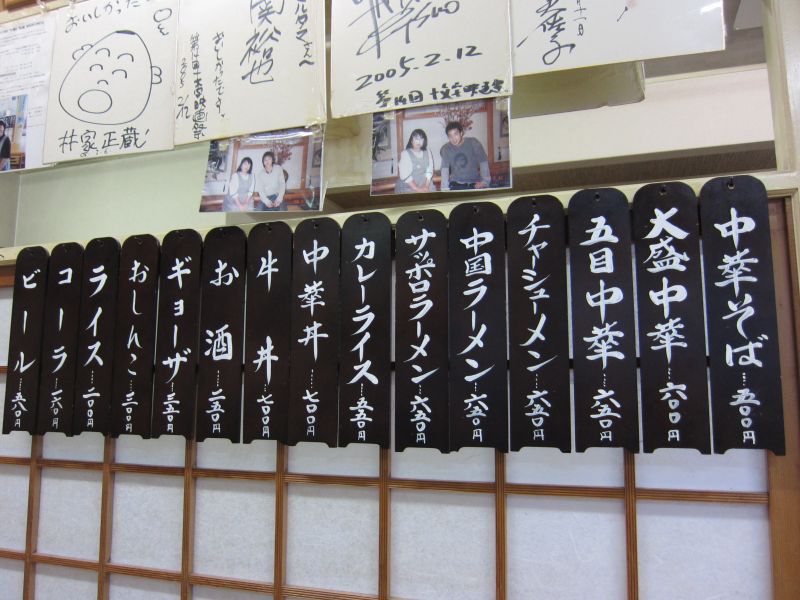 おいしかった
林家正蔵
おいしかったです。
第14回
2005.2.12
中華そば……五〇〇円
大盛中華…六〇〇円
五目中華…六五〇円
チャーシューメン…六五〇円
中国ラーメン…六五〇円
サッポロラーメン…六五〇円
カレーライス…五五〇円
中華丼…七〇〇円
牛丼……七〇〇円
お酒……二五〇円
ギョーザ…三五〇円
おしんこ……三〇〇円
ライス…二〇〇円
コーラ…二〇〇円
ビール……五五〇円